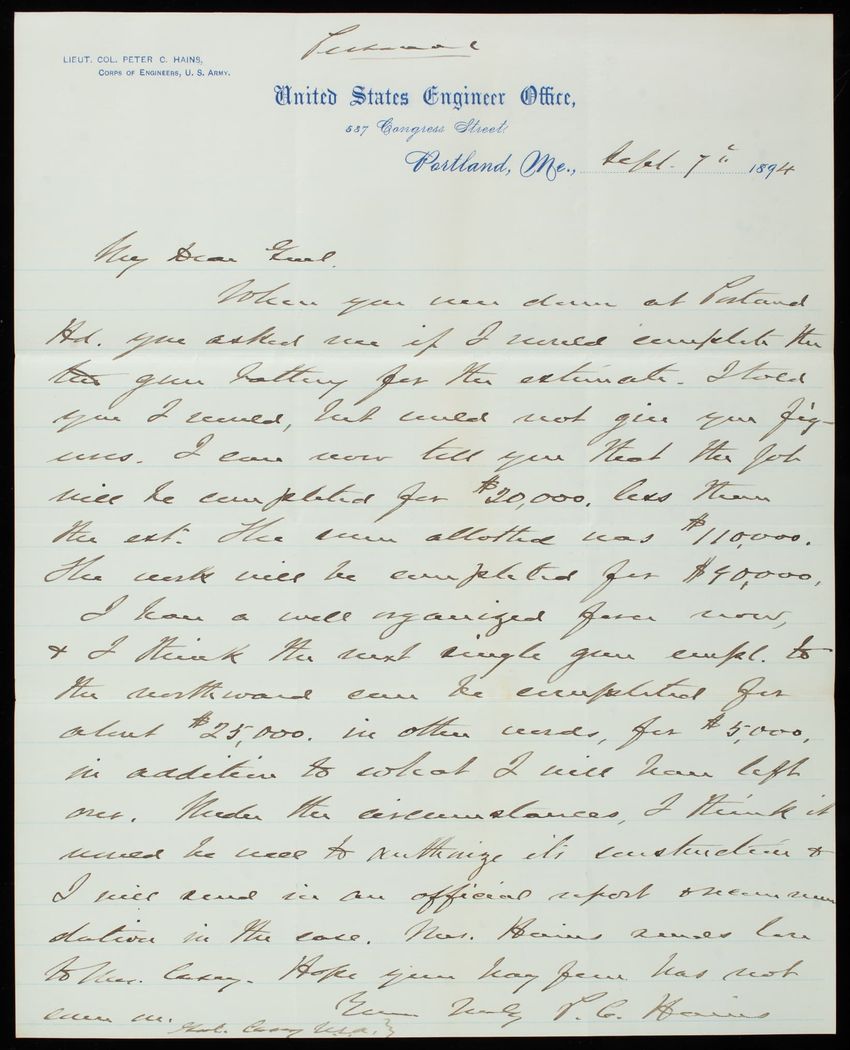 Personal
LIEUT. COL. PETER C. HAINS,
CORPS OF ENGINEERS, U. S. ARMY.
United States Engineer Office,
537 Congress Street.
Portland, Me., Sept. 7th 1894
My Dear Genl.
When you were down at Portland
Hd. you asked me if I could complete the
gun battery for the estimate. I told
you I could, but could not give you fig-
ures. I can now tell you that the job
will be completed for $20,000. less than
the est. The sum allotted was $110,000.
The work will be completed for $90,000.
I have a well organized force now,
& I think the next single gun empl. to
the northward can be completed for
about $25,000. in other words, for $5,000,
in addition to what I will have left
over. Under the circumstances, I think it
would be well to authorize its construction &
I will send in an official report & recommen
dation in the case. Mrs. Hains sends love
to Mrs. Casey. Hope your hay fever has not
come on. Yours truly P. C. Hains
Genl. Casey U.S.A.